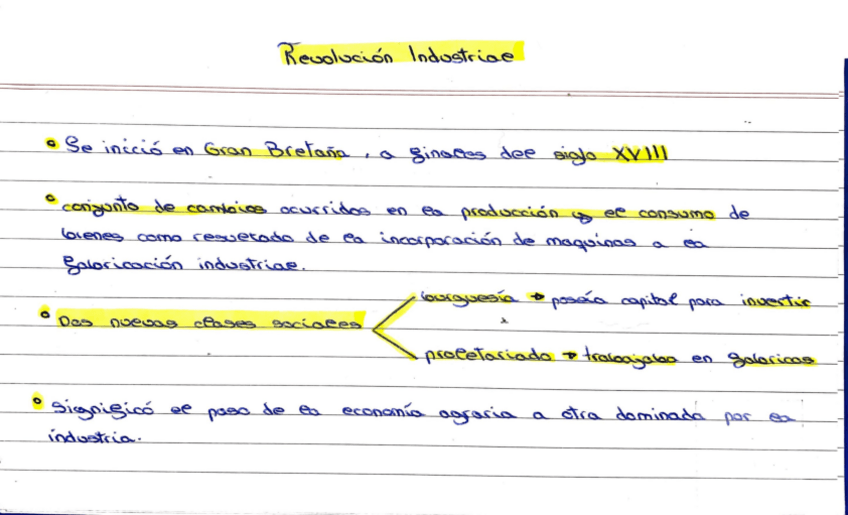 Revolución Industrial
• Se inició en Gran Bretaña, a finales del siglo XVIII
• conjunto de cambios ocurridos en la producción y el consumo de
bienes como resultado de la incorporación de maquinas a la
fabricación industrial.
• Dos nuevas clases sociales
burguesía → poseía capital para invertir
proletariado → trabajaba en fabricas
• significó el paso de la economía agraria a otra dominada por la
industria.